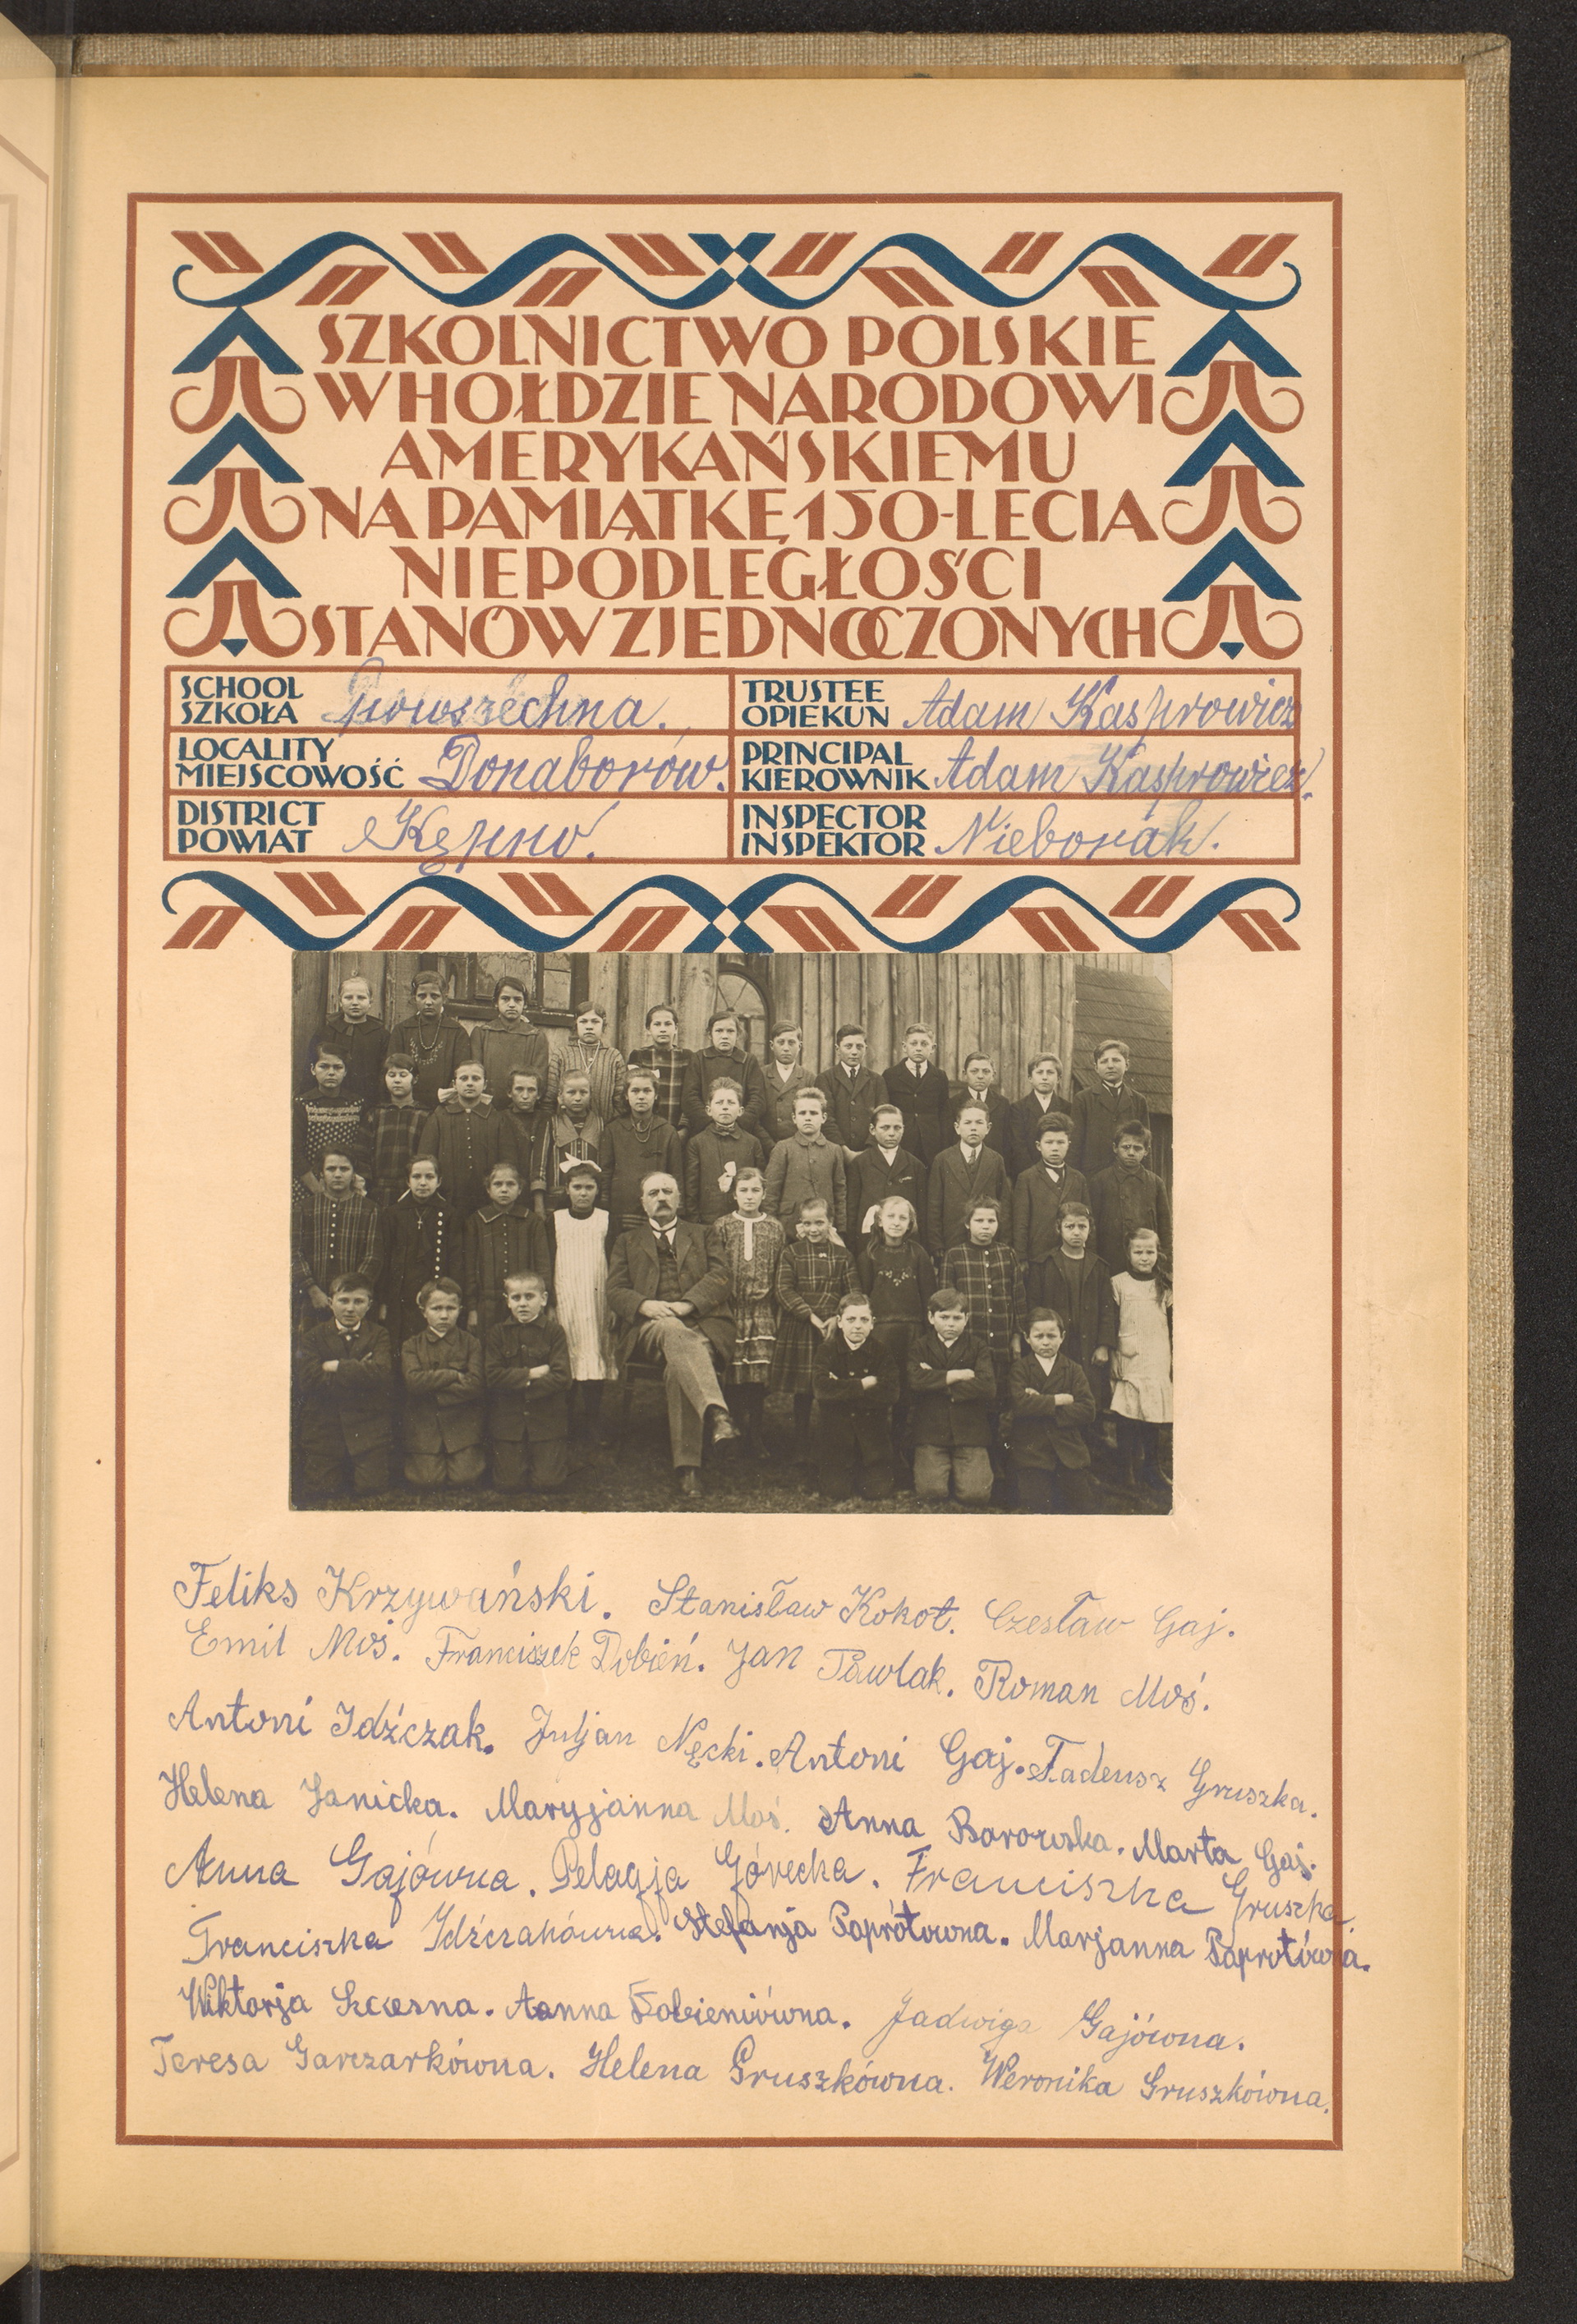 SZKOLNICTWO POLSKIE
W HOŁDZIE NARODOWI
AMERYKAŃSKIEMU
NA PAMIĄTKĘ 150-LECIA
NIEPODLEGŁOŚCI
STANÓW ZJEDNOCZONYCH
SCHOOL
SZKOŁA powszechna.
TRUSTEE
OPIEKUN Adam Kasprowicz
LOCALITY
MIEJSCOWOŚĆ Donaborów.
PRINCIPAL
KIEROWNIK Adam Kasprowicz.
DISTRICT
POWIAT Kępno.
INSPECTOR
INSPEKTOR Nieborak.
Feliks Krzywański. Stanisław Kokot. Czesław Gaj.
Emil Moś. Franciszek Dobień. Jan Pawlak. Roman Moś.
Antoni Idźczak. Juljan Nęcki. Antoni Gaj. Tadeusz Gruszka.
Helena Janicka. Maryjanna Moś. Anna Borowska. Marta Gaj.
Anna Gajówna. Pelagja Górecka. Franciszka Gruszka.
Franciszka Idźczakówna. Stefanja Paprótowna. Marjanna Paprotówna.
Wiktorja Szczesna. Aanna Jadwiga Gajówna.
Teresa Garczarkówna. Helena Gruszkówna. Weronika Gruszkówna.